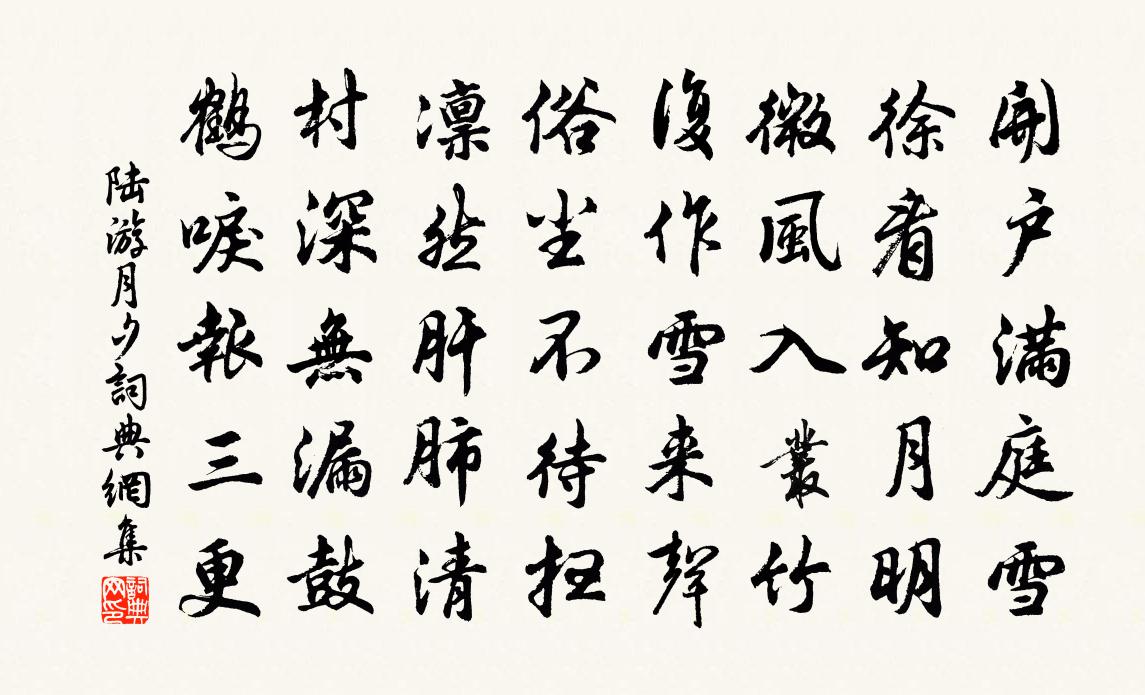 開戶滿庭雪
徐看知月明
微風入叢竹
復作雪来聲
俗尘不待扫
凛然肝肺清
村深無漏鼓
鶴唳報三更
陆游月夕詞典網集
詞典网印